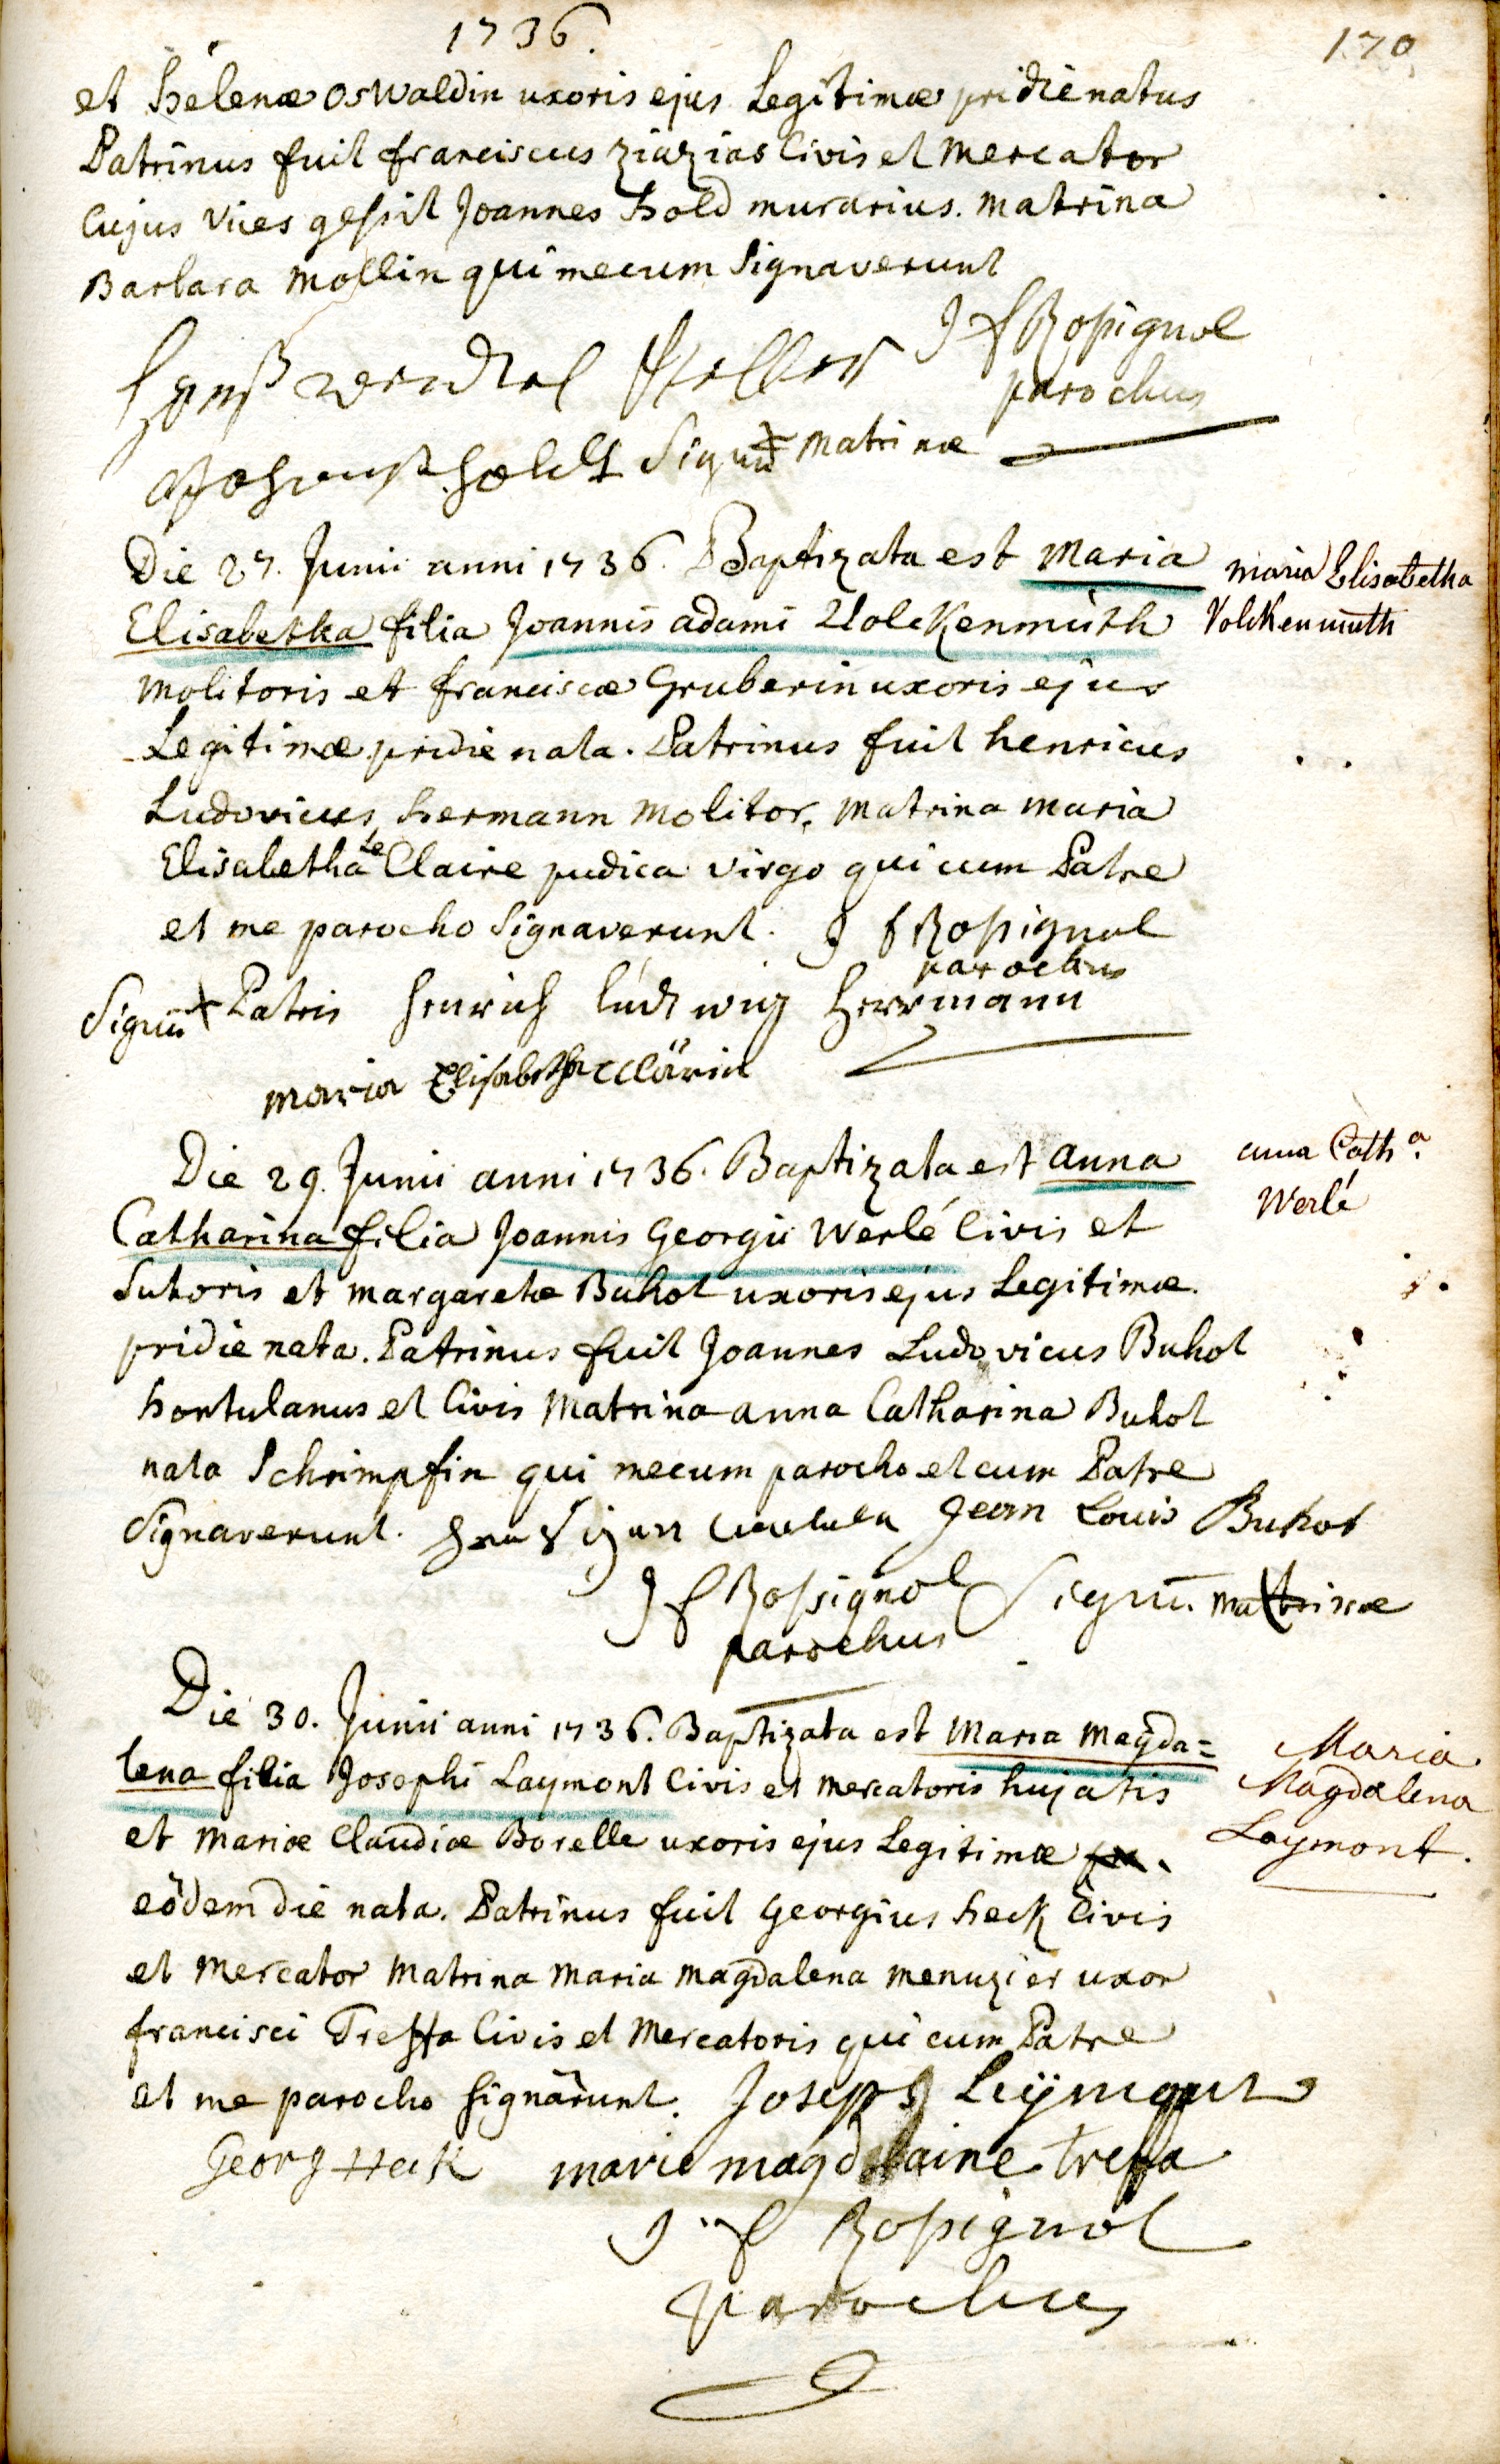 1736.
170
et Helenæ Oswaldin uxoris ejus Legitimæ pridie natus
Patrinus fuit franciscus ziazias Civis et Mercator
Cujus Vices gessit Joannes Hold murarius. Matrina
Barbara Mollin qui mecum Signaverunt
J f Rossignol
parochus
Signū Matrinæ
Die 27. Junii anni 1736. Baptizata est Maria
Elisabetha filia Joannis adami Volckenmuth
Molitoris et franciscæ Gruberin uxoris ejus
Legitimæ pridie nata. Patrinus fuit henricus
Ludovicus Hermann Molitor, Matrina Maria
Elisabetha Le Claire pudica virgo qui cum Patre
et me parocho Signaverunt. J f Rossignol
parochus
Signū Patris Henrich Ludwig Herrmann
Maria Elisabetha Clärin
maria Elisabetha
Volckenmuth
Die 29. Junii anni 1736. Baptizata est anna
Catharina filia Joannis Georgii Werlé Civis et
Sutoris et Margarethæ Buhot uxoris ejus Legitimæ.
pridie nata. Patrinus fuit Joannes Ludovicus Buhot
hortulanus et Civis Matrina anna Catharina Buhot
nata Schrimpfin qui mecum parocho et cum Patre
Signaverunt. Jean Louis Buhot
J f Rossignol Signū. matrinæ
parochus
anna Cath.a
Werlé
Die 30. Junii anni 1736. Baptizata est Maria Magda=
lena filia Josephi Laymont Civis et Mercatoris hujatis
et Mariæ Claudiæ Borelle uxoris ejus Legitimæ
eôdem die nata. Patrinus fuit Georgius Heck Civis
et Mercator Matrina Maria Magdalena Menuzier uxor
francisci Treffa Civis et Mercatoris qui cum Patre
et me parocho signârunt. Joseph Leymont
Georg Heck marie magdelaine treffa
J f Rossignol
parochus
Maria
Magdalena
Laymont.